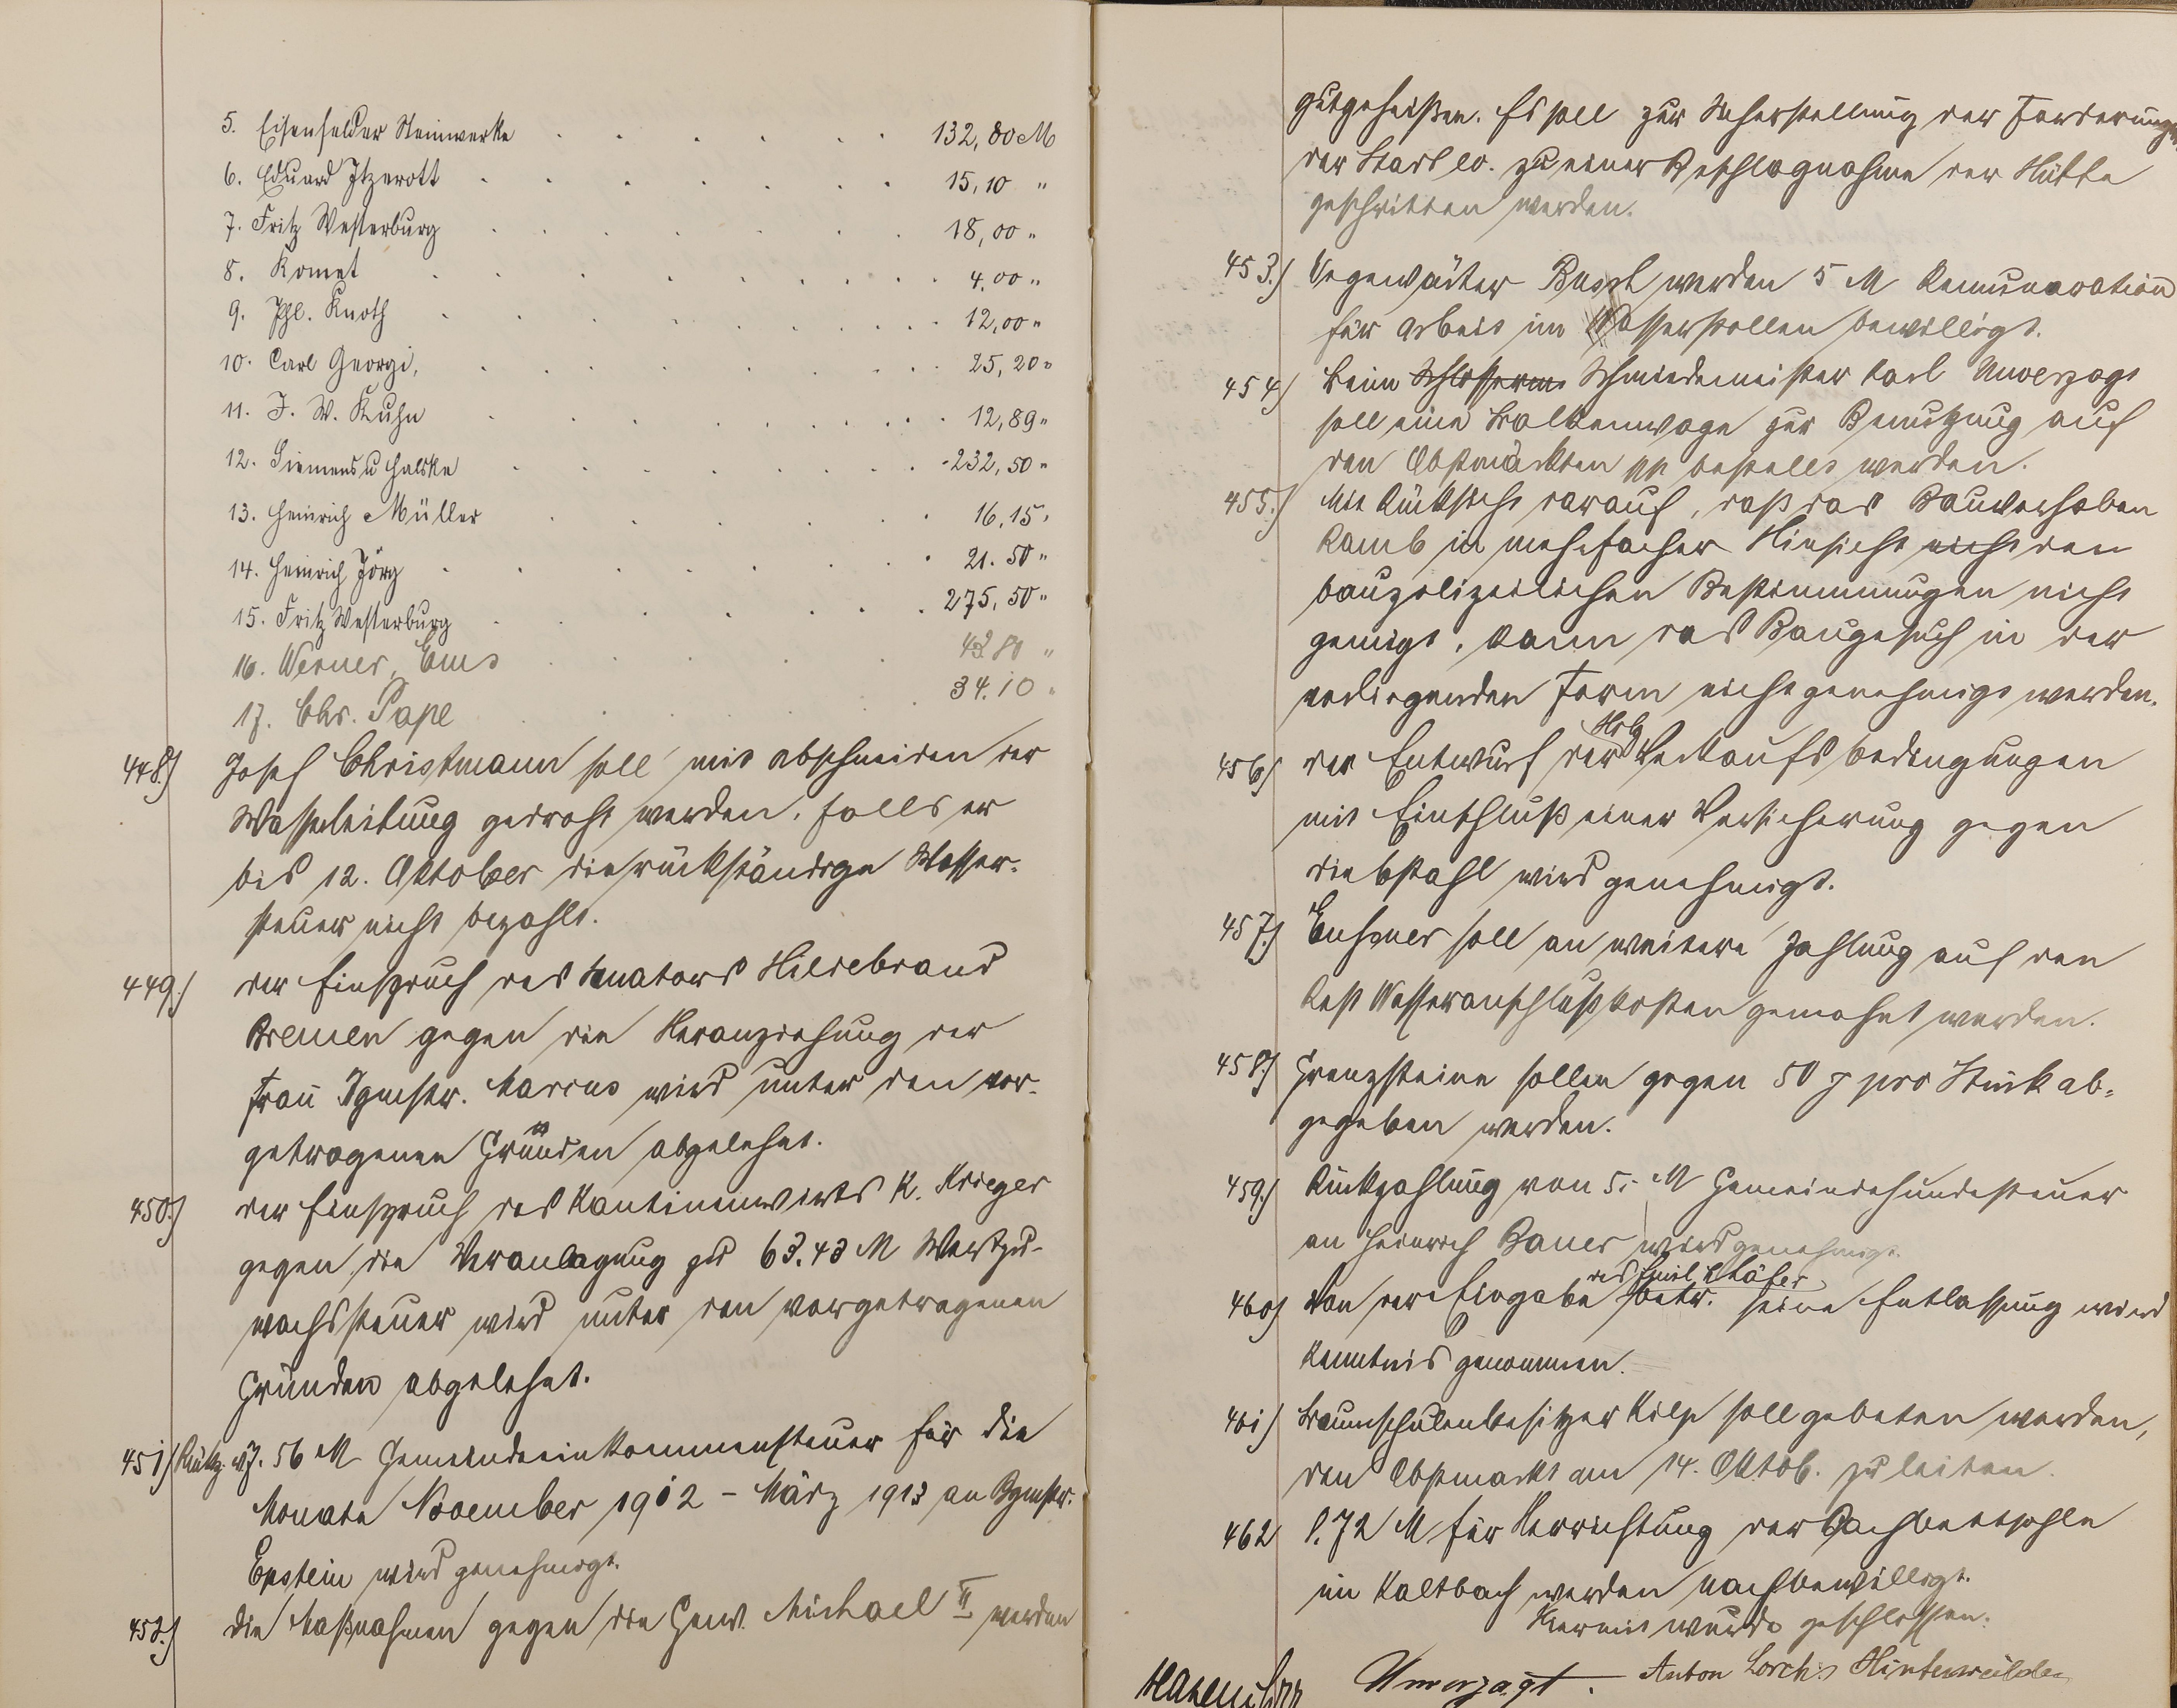 5. Eisenfelder Steinwerke . . . . . 132,80 M
6. Eduard Itzerott . . . . . . 15,10 "
7. Fritz Westerburg . . . . . . 18,00 "
8. Komet . . . . . . . 4.00 "
9. Phl. Knoth . . . . . . . 12,00 "
10. Carl Georgi, . . . . . . 25,20 "
11. F. W. Kuhn . . . . . . 12,89 "
12. Siemens u Halske . . . . . . 232,50 "
13. Heinrich Müller . . . . . 16,15 "
14. Heinrich Jörg . . . . . . 21.50 "
15. Fritz Westerburg . . . . . 275,50 "
16. Werner, Ems . . . . . 80 "
17. Chr. Pape . . . . 34.10 "
448.) Josef Christmann soll mit abschneiden der
Wasserleitung gedroht werden, falls er
bis 12. Oktober die rückständige Wasser-
steuer nicht bezahlt.
449.) der Einspruch des Senators Hildebrand
Bremen gegen die Heranziehung der
Frau Bgmstr. Marcus wird unter den vor-
getragenen Gründen abgelehnt.
450.) der Einspruch des Kantinenwirts K. Krieger
gegen die Veranlagung zu 63.43 M Wertzu-
wachssteuer wird unter den vorgetragenen
Gründen abgelehnt.
451) Rückz. v. 56 M Gemeindeeinkommensteuer für die
Monate November 1912 - März 1913 an Bgmstr.
Epstein wird genehmigt.
452.) die Maßnahmen gegen die Gew. Michael II werden
gutgeheißen. Es soll zur Sicherstellung der Forderungen
der Stadt ev. zu einer Beschlagnahme der Hütte
geschritten werden.
453.) Wegewärter Busch werden 5 M Remuneration
für Arbeit im Wasserstollen bewilligt.
454) beim Schlosserm Schmiedemeister Karl Unverzagt
soll eine Balkenwage zur Benutzung auf
den Obstmärkten pp bestellt werden.
455.) Mit Rücksicht darauf, daß das Bauvorhaben
Kamb in mehrfacher Hinsicht nicht den
baupolizeilichen Bestimmungen nicht
genügt, kann das Baugesuch in der
vorliegenden Form nicht genehmigt werden.
456) der Entwurf der Holz Verkaufsbedingungen
mit Einschluß einer Versicherung gegen
diebstahl wird genehmigt.
457.) soll an weitere Zahlung auf den
Rest Wasseranschlußkosten gemahnt werden.
458.) Grenzsteine sollen gegen 50 ₰ pro Stück ab-
gegeben werden.
459.) Rückzahlung von 5,- M Gemeindehundesteuer
an Heinrich Bauer wird genehmigt.
460) Von der Eingabe des Emil Schäfer betr. seine Entlassung wird
Kenntnis genommen.
461) Baumschulenbesitzer Kilp soll gebeten werden,
den Obstmarkt am 14. Oktob. zu leiten.
462 8.72 M für Herrichtung der Bachbettsohle
im Kaltbach werden nachbewilligt.
Hiermit wurde geschlossen.
Unverzagt. Anton Lorch